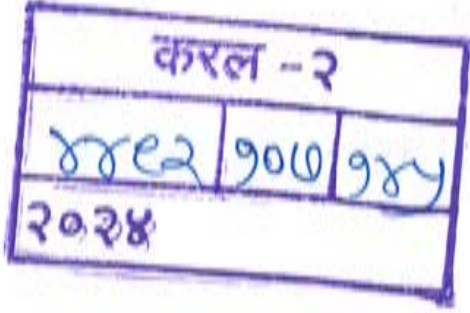 करल - २
४४९२ १०७ १४५
२०२४